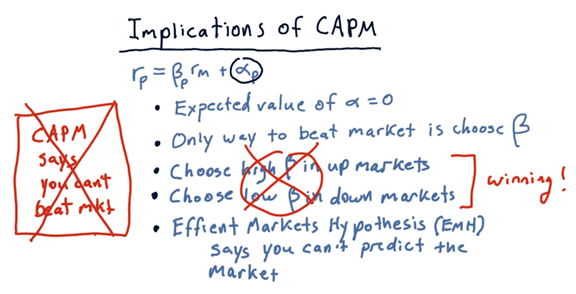 Implications of CAPM
rp = βp rm + αp
• Expected value of α = 0
• Only way to beat market is choose β
• Choose high β in up markets
• Choose low β in down markets
winning!
• Effient Markets Hypothesis (EMH)
says you can't predict the
market
CAPM
says
you can't
beat mkt